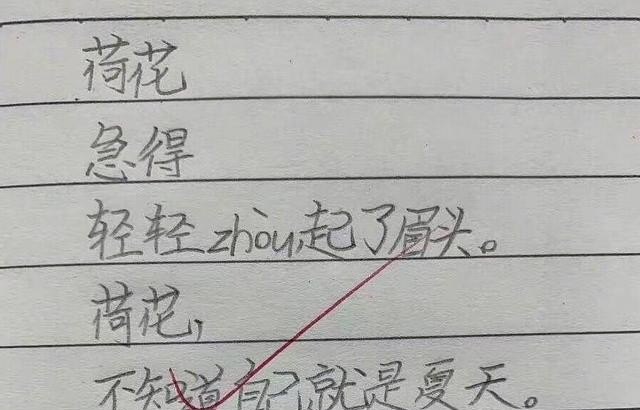 荷花
急得
轻轻zhòu起了眉头。
荷花,
不知道自己就是夏天。